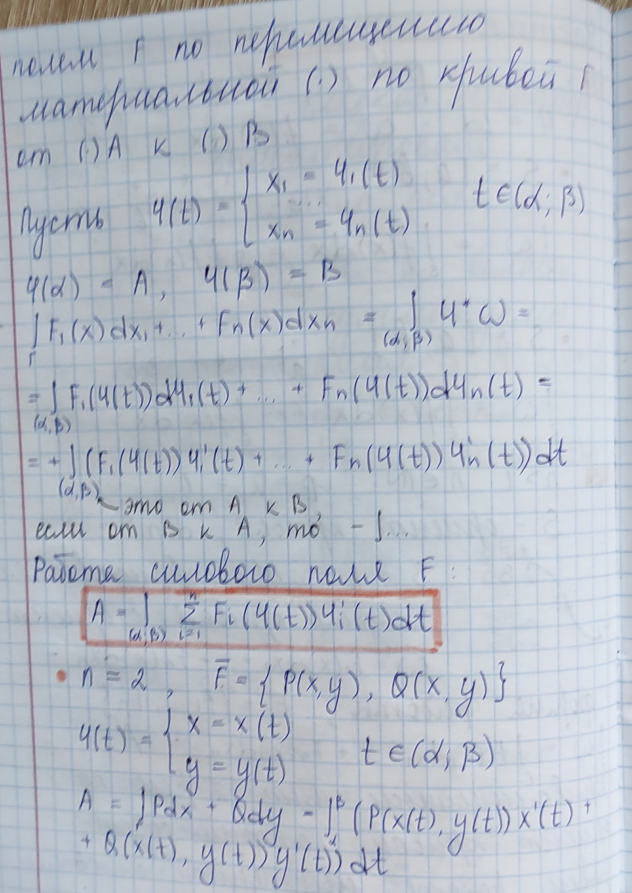 полем F по перемещению
материальной (·) по кривой Γ
от (·) A к (·) B
Пусть φ(t) = { x₁ = φ₁(t) ... xₙ = φₙ(t) t ∈ (α; β)
φ(α) = A, φ(β) = B
∫_Γ F₁(x)dx₁ + ... + Fₙ(x)dxₙ = ∫_(α;β) φ*ω =
= ∫_(α;β) F₁(φ(t))dφ₁(t) + ... + Fₙ(φ(t))dφₙ(t) =
= + ∫_(α;β) (F₁(φ(t))φ₁'(t) + ... + Fₙ(φ(t))φₙ'(t))dt
это от A к B,
если от B к A, то - ∫...
Работа силового поля F:
A = ∫_(α;β) ∑_{i=1}^{n} Fᵢ(φ(t))φᵢ'(t)dt
• n = 2, F̅ = {P(x,y), Q(x,y)}
φ(t) = { x = x(t) y = y(t) t ∈ (α; β)
A = ∫ Pdx + Qdy = ∫_α^β (P(x(t), y(t))x'(t) +
+ Q(x(t), y(t))y'(t))dt